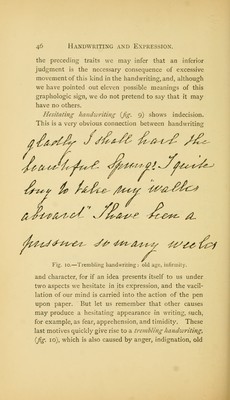 46 HANDWRITING AND EXPRESSION.
the preceding traits we may infer that an inferior
judgment is the necessary consequence of excessive
movement of this kind in the handwriting, and, although
we have pointed out eleven possible meanings of this
graphologic sign, we do not pretend to say that it may
have no others.
Hesitating handwriting (fig. 9) shows indecision.
This is a very obvious connection between handwriting
gladly I shall hail the
beautiful Spring! I quite
long to take my walks
abroad" I have been a
prisoner so many weeks
Fig. 10.—Trembling handwriting: old age, infirmity.
and character, for if an idea presents itself to us under
two aspects we hesitate in its expression, and the vacil-
lation of our mind is carried into the action of the pen
upon paper. But let us remember that other causes
may produce a hesitating appearance in writing, such,
for example, as fear, apprehension, and timidity. These
last motives quickly give rise to a trembling handwriting,
(fig. 10), which is also caused by anger, indignation, old